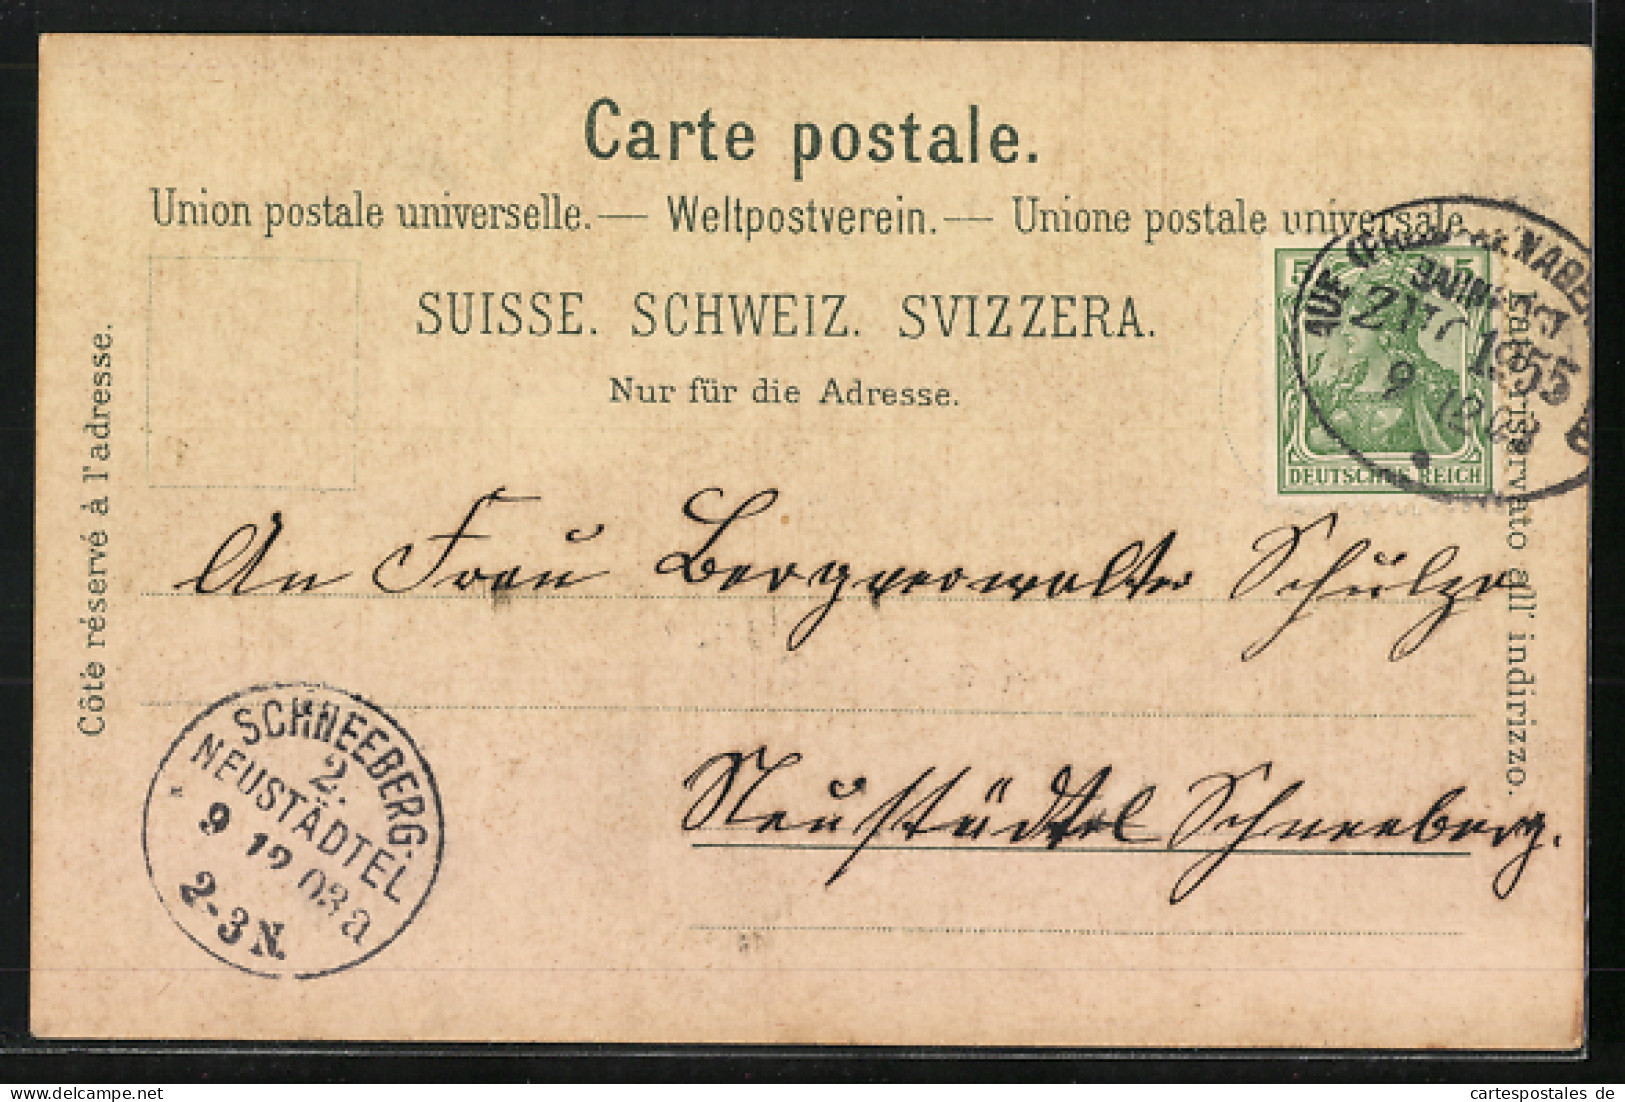 Carte postale.
Union postale universelle. — Weltpostverein. — Unione postale universale.
SUISSE. SCHWEIZ. SVIZZERA.
Nur für die Adresse.
Côté réservé à l'adresse.
Lato riservato all' indirizzo.
5 5
DEUTSCHES REICH
AUE
BAHNPOST
ZUG 1955
9 12 03
An Frau Bergverwalter Schulze
Neustädtel Schneeberg.
SCHNEEBERG.
2.
NEUSTÄDTEL
9 12 03 a
2-3 N.
cartespostales de